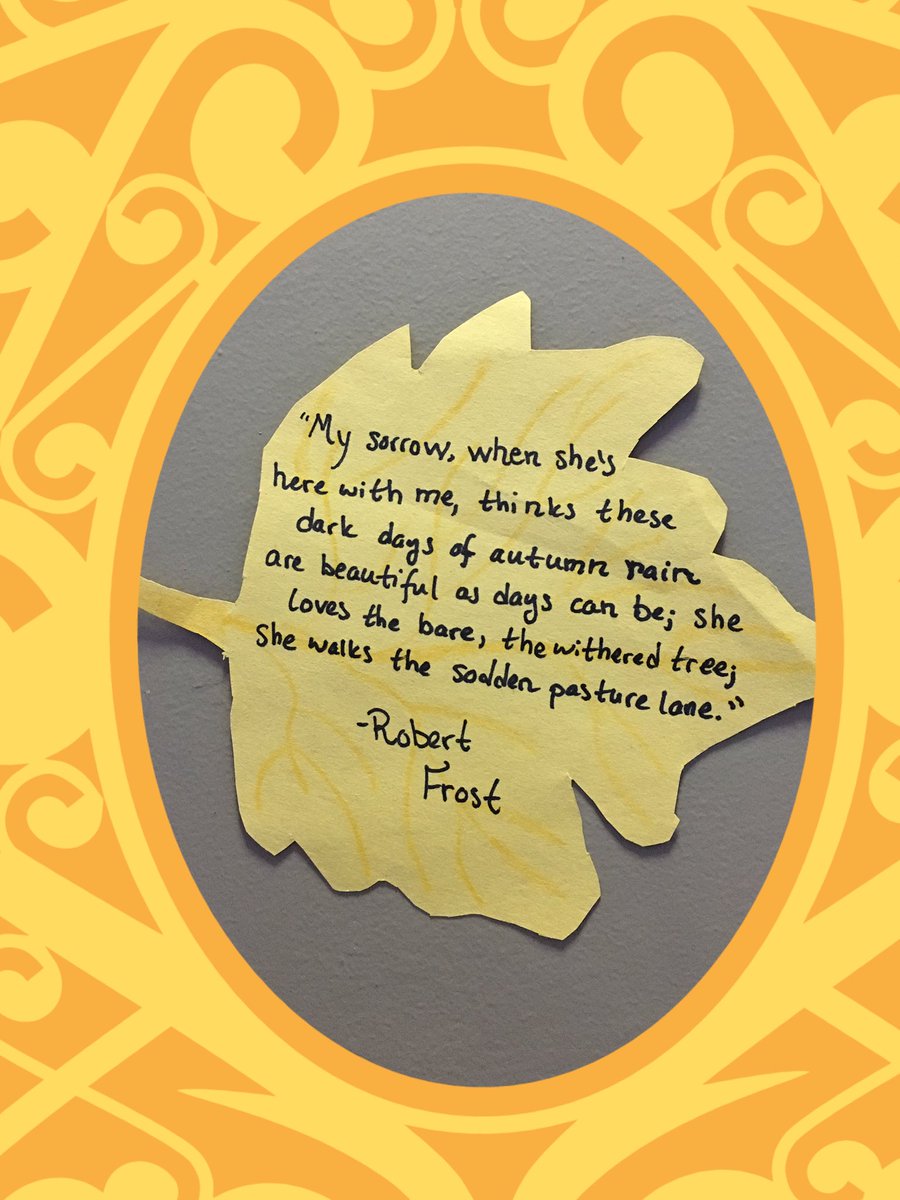 "My sorrow, when she's
here with me, thinks these
dark days of autumn rain
are beautiful as days can be; she
loves the bare, the withered tree;
She walks the sodden pasture lane."
-Robert
Frost